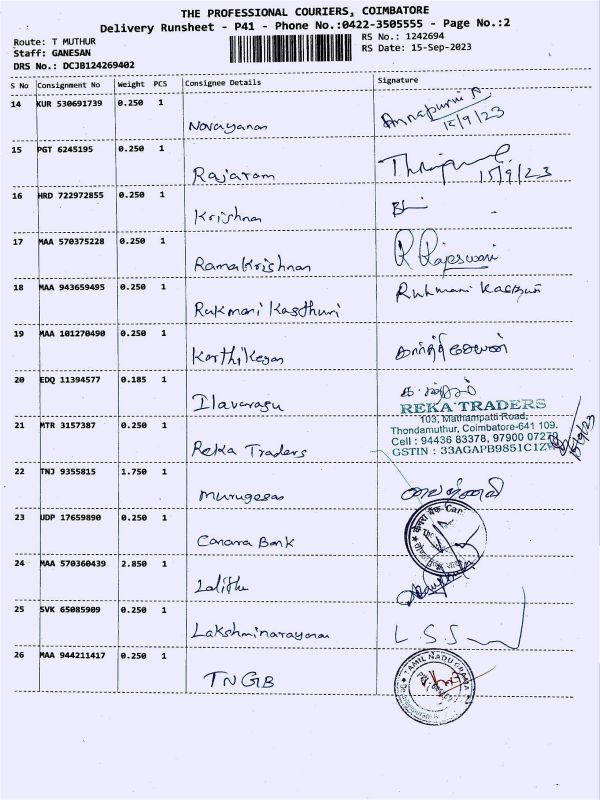 THE PROFESSIONAL COURIERS, COIMBATORE
Delivery Runsheet - P41 - Phone No.:0422-3505555 - Page No.:2
Route: T MUTHUR
RS No.: 1242694
Staff: GANESAN
RS Date: 15-Sep-2023
DRS No.: DCJB124269402
S No Consignment No Weight PCS Consignee Details Signature
14 KUR 530691739 0.250 1
Narayanan Annapurni
15/9/23
15 PGT 6245195 0.250 1
Rajaram 15/9/23
16 HRD 722972855 0.250 1
Krishnan
17 MAA 570375228 0.250 1
Ramakrishnan R Rajeswari
18 MAA 943659495 0.250 1
Rukmani Kasthuri Rukmani
19 MAA 101270490 0.250 1
Karthikeyan கார்த்திகேயன்
20 EDQ 11394577 0.185 1
Ilavarasu
REKA TRADERS
21 MTR 3157387 0.250 1
103, Mathampatti Road,
Thondamuthur, Coimbatore-641 109.
Reka Traders
Cell : 94436 83378, 97900
GSTIN : 33AGAPB9851C1Z
15/9/23
22 TNJ 9355815 1.750 1
Murugesan
23 UDP 17659890 0.250 1
Canara Bank
24 MAA 570360439 2.850 1
Lalitha
25 SVK 65085909 0.250 1
Lakshminarayanan L S S
26 MAA 944211417 0.250 1
TNGB
TAMIL NADU GRAMA